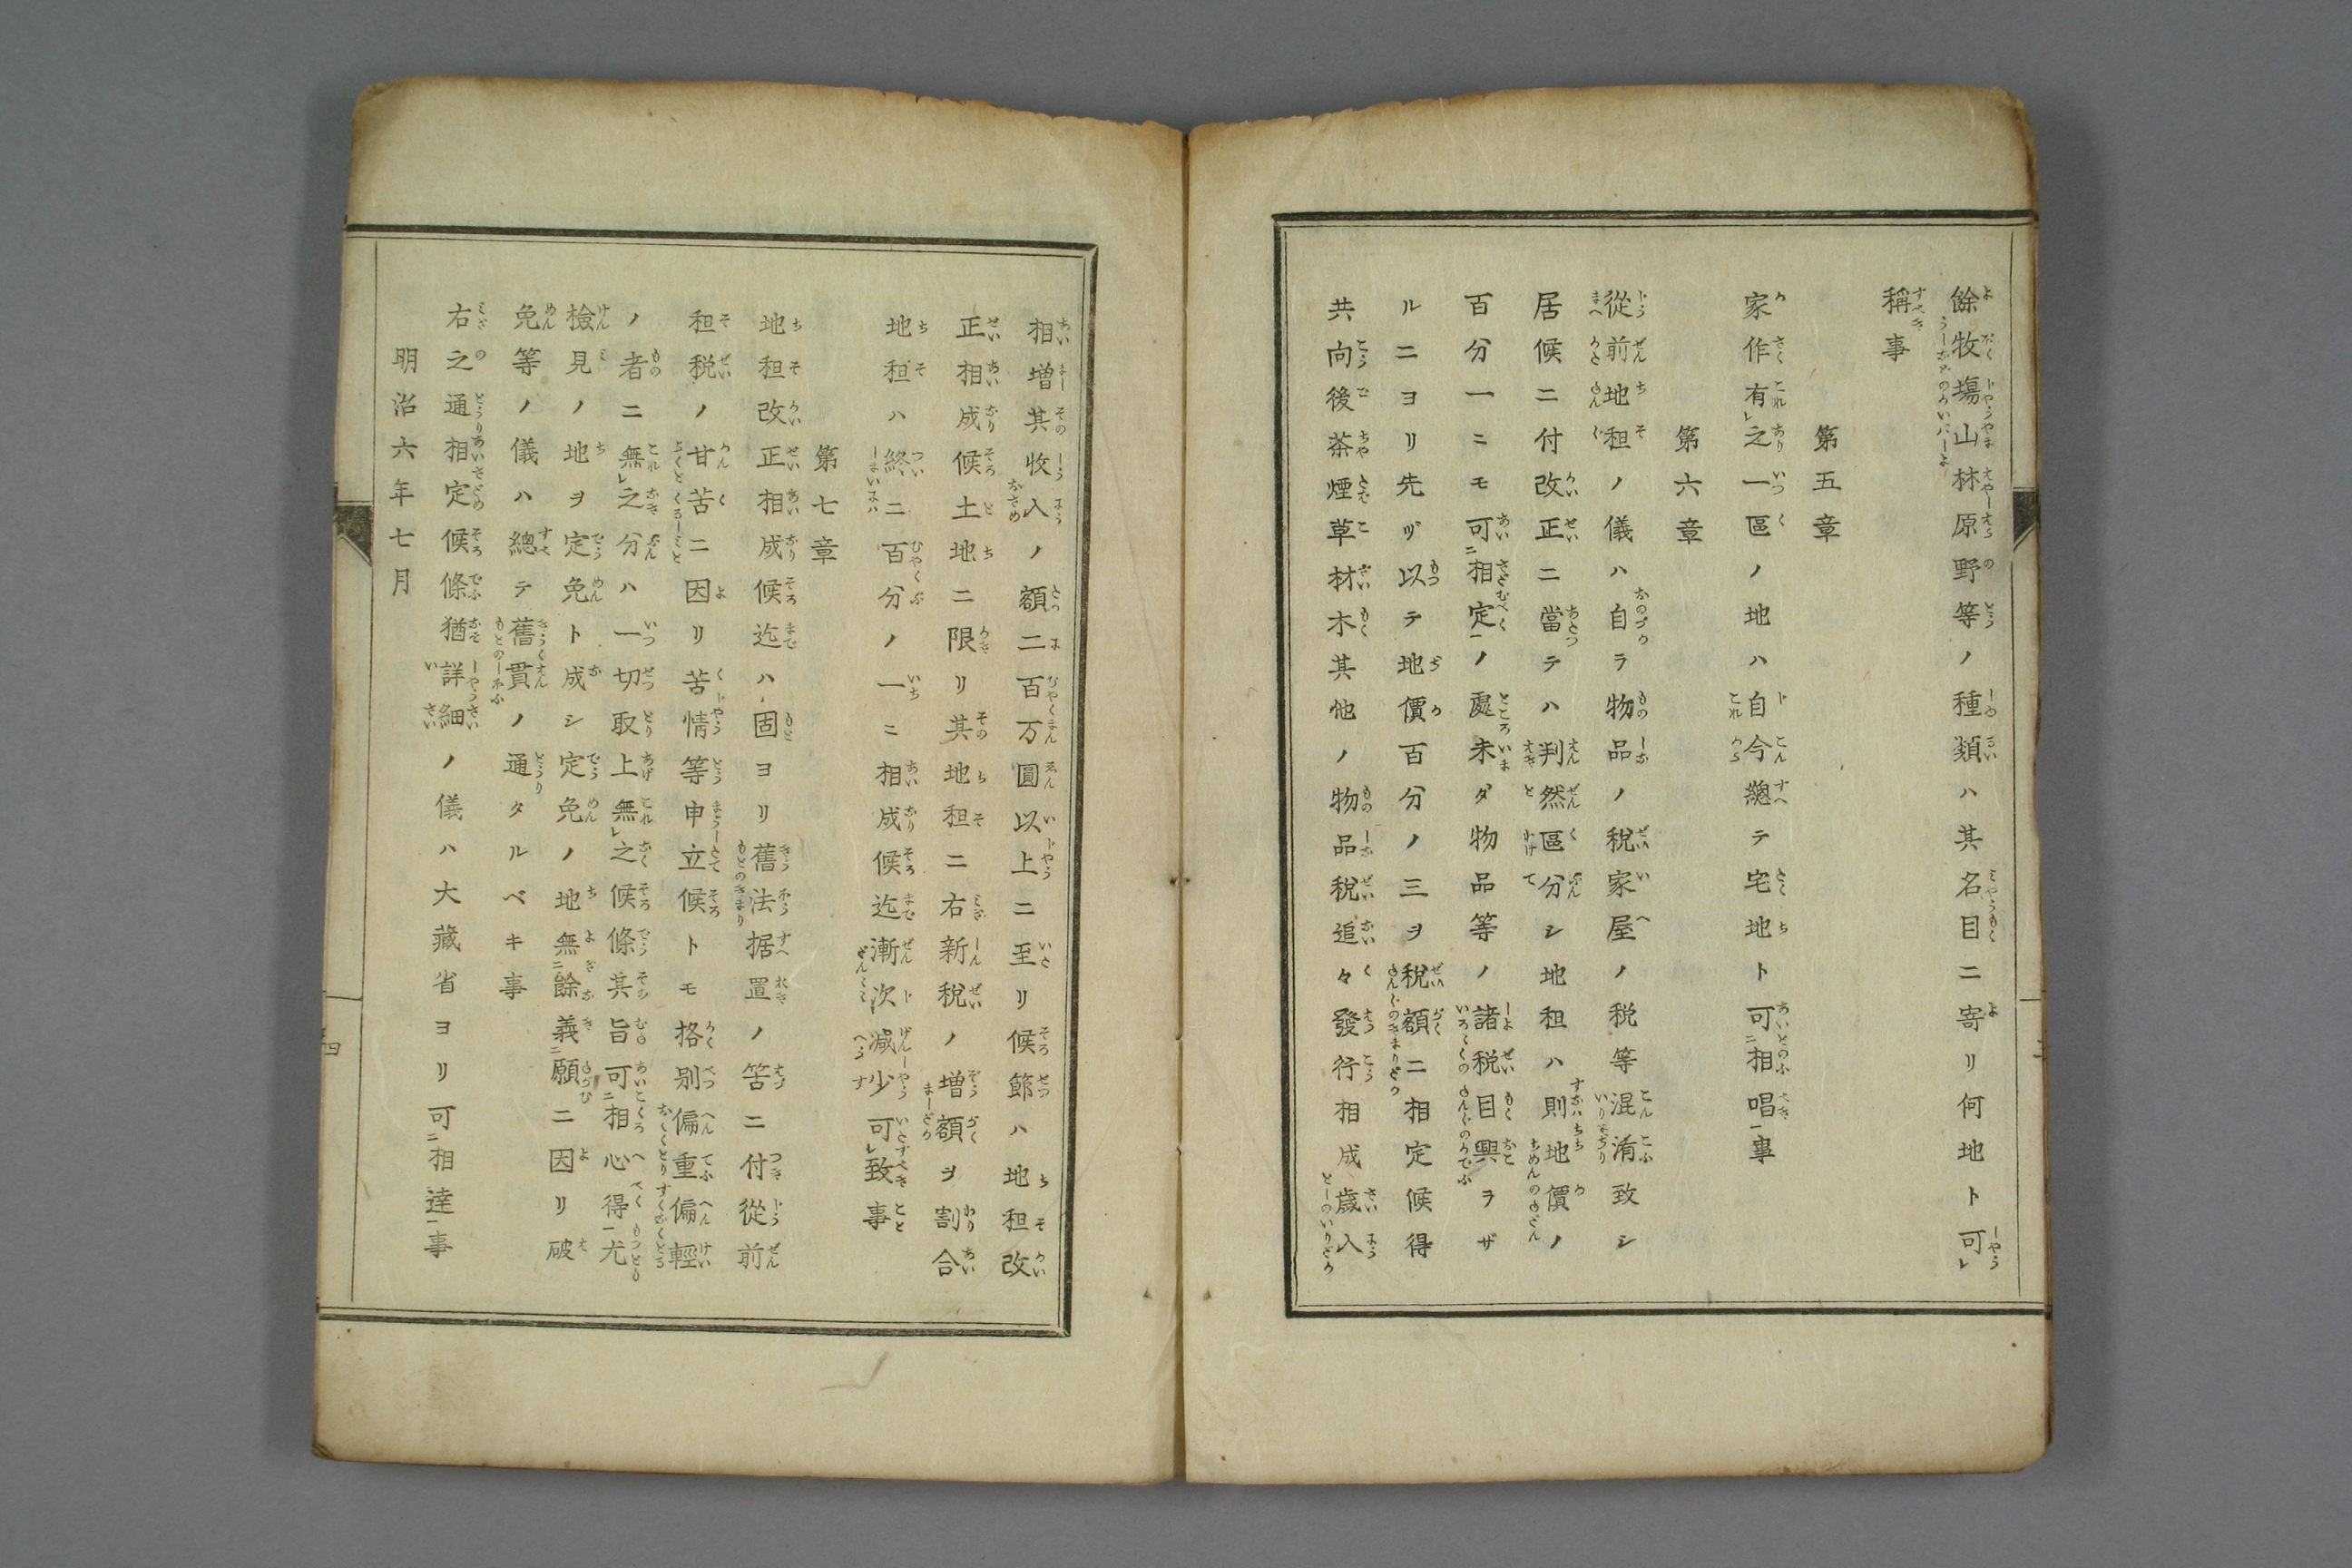 餘牧塲山林原野等ノ種類ハ其名目ニ寄リ何地ト可レ
稱事
第五章
家作有レ之一區ノ地ハ自今總テ宅地ト可ニ相唱一事
第六章
從前地租ノ儀ハ自ラ物品ノ税家屋ノ税等混淆致シ
居候ニ付改正ニ當テハ判然區分シ地租ハ則地價ノ
百分一ニモ可ニ相定一ノ處未ダ物品等ノ諸税目興ラザ
ルニヨリ先ヅ以テ地價百分ノ三ヲ税額ニ相定候得
共向後茶煙草材木其他ノ物品税追々發行相成歳入
相增其收入ノ額二百万圓以上ニ至リ候節ハ地租改
正相成候土地ニ限リ其地租ニ右新税ノ增額ヲ割合
地租ハ終ニ百分ノ一ニ相成候迄漸次減少可レ致事
第七章
地租改正相成候迄ハ固ヨリ舊法据置ノ筈ニ付從前
租税ノ甘苦ニ因リ苦情等申立候トモ格別偏重偏輕
ノ者ニ無レ之分ハ一切取上無レ之候條其旨可ニ相心得一尤
檢見ノ地ヲ定免ト成シ定免ノ地無ニ餘義ニ願ニ因リ破
免等ノ儀ハ總テ舊貫ノ通タルベキ事
右之通相定候條猶詳細ノ儀ハ大藏省ヨリ可ニ相達一事
明治六年七月
四